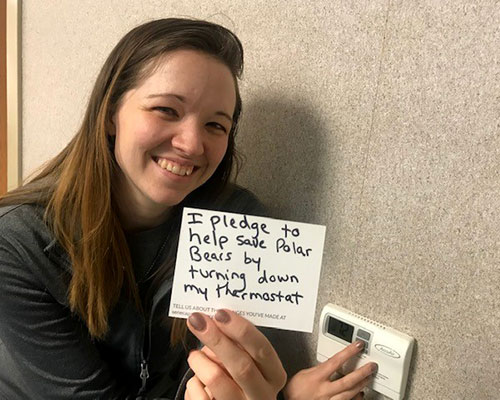 I pledge to
help save Polar
Bears by
turning down
my thermostat
TELL US ABOUT THE CHANGES YOU'VE MADE AT